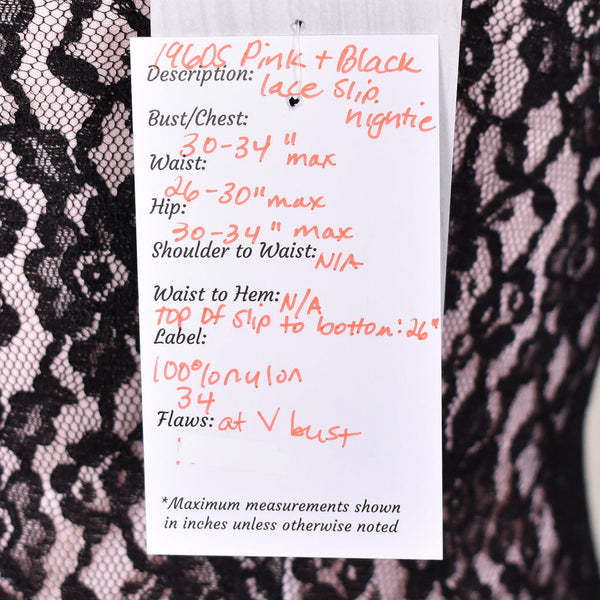 1960s Pink + Black
Description: lace slip
nightie
Bust/Chest:
30-34" max
Waist:
26-30" max
Hip:
30-34" max
Shoulder to Waist: N/A
Waist to Hem: N/A
top of slip to bottom: 26"
Label:
100% nylon
34
Flaws: at V bust
*Maximum measurements shown
in inches unless otherwise noted